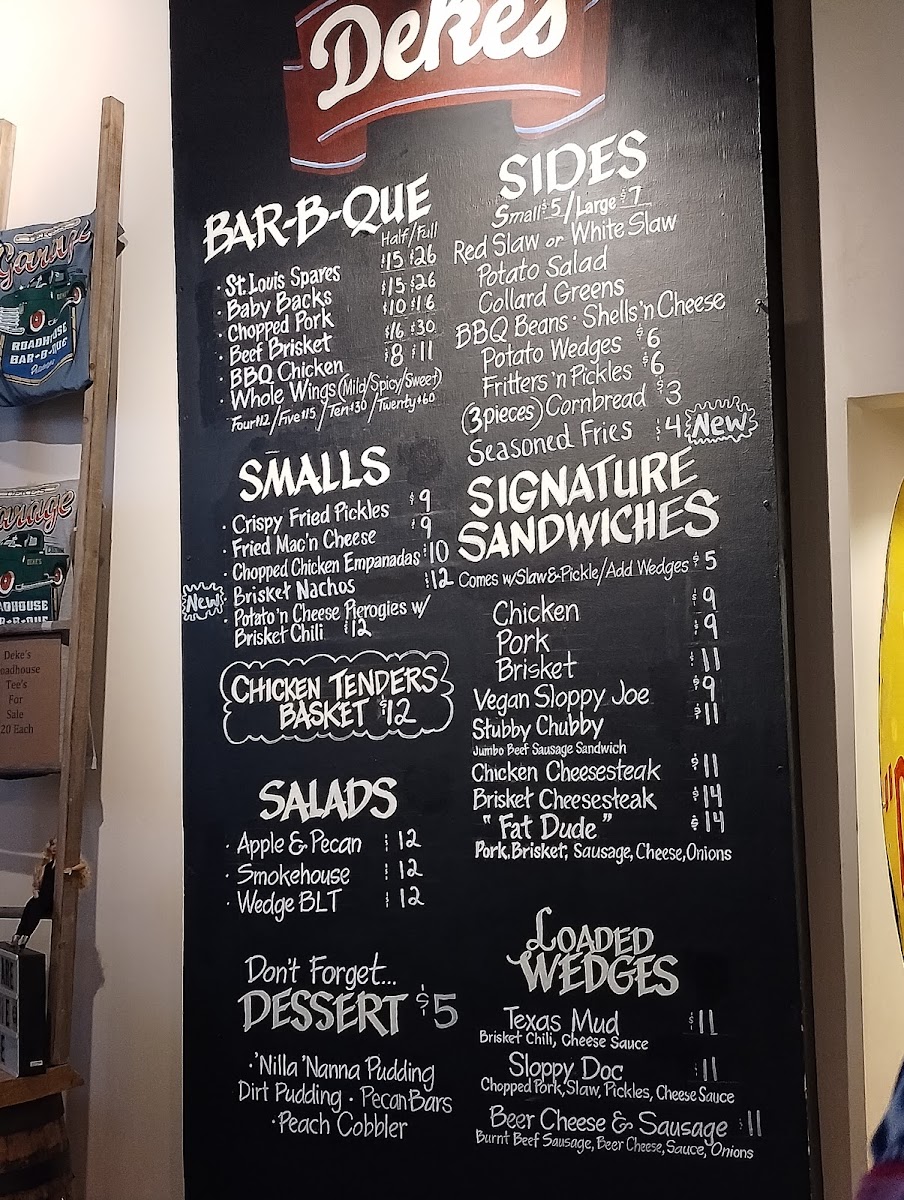 Deke's
BAR-B-QUE
Half/Full
· St. Louis Spares $15 $26
· Baby Backs $15 $26
· Chopped Pork $10 $16
· Beef Brisket $16 $30
· BBQ Chicken $8 $11
· Whole Wings (Mild/Spicy/Sweet)
Four $12 / Five $15 / Ten $30 / Twenty $60
SMALLS
· Crispy Fried Pickles $9
· Fried Mac'n Cheese $9
· Chopped Chicken Empanadas $10
· Brisket Nachos $12
New
· Potato 'n Cheese Pierogies w/
Brisket Chili $12
CHICKEN TENDERS
BASKET $12
SALADS
· Apple & Pecan $12
· Smokehouse $12
· Wedge BLT $12
Don't Forget...
DESSERT $5
· 'Nilla 'Nanna Pudding
Dirt Pudding · Pecan Bars
· Peach Cobbler
SIDES
Small $5 / Large $7
Red Slaw or White Slaw
Potato Salad
Collard Greens
BBQ Beans · Shells 'n Cheese
Potato Wedges $6
Fritters 'n Pickles $6
(3 pieces) Cornbread $3
Seasoned Fries $4 New
SIGNATURE
SANDWICHES
Comes w/Slaw & Pickle/Add Wedges $5
Chicken $9
Pork $9
Brisket $11
Vegan Sloppy Joe $9
Stubby Chubby $11
Jumbo Beef Sausage Sandwich
Chicken Cheesesteak $11
Brisket Cheesesteak $14
"Fat Dude" $14
Pork, Brisket, Sausage, Cheese, Onions
LOADED
WEDGES
Texas Mud $11
Brisket Chili, Cheese Sauce
Sloppy Doc $11
Chopped Pork, Slaw, Pickles, Cheese Sauce
Beer Cheese & Sausage $11
Burnt Beef Sausage, Beer Cheese, Sauce, Onions
Garage
ROADHOUSE
BAR-B-QUE
Garage
DEKE'S
ROADHOUSE
BAR-B-QUE
Deke's
Roadhouse
Tee's
For
Sale
20 Each